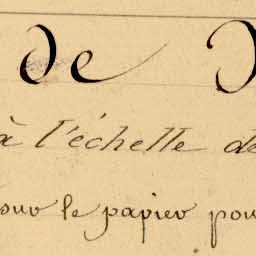 de
à l'échelle de
sur le papier pour